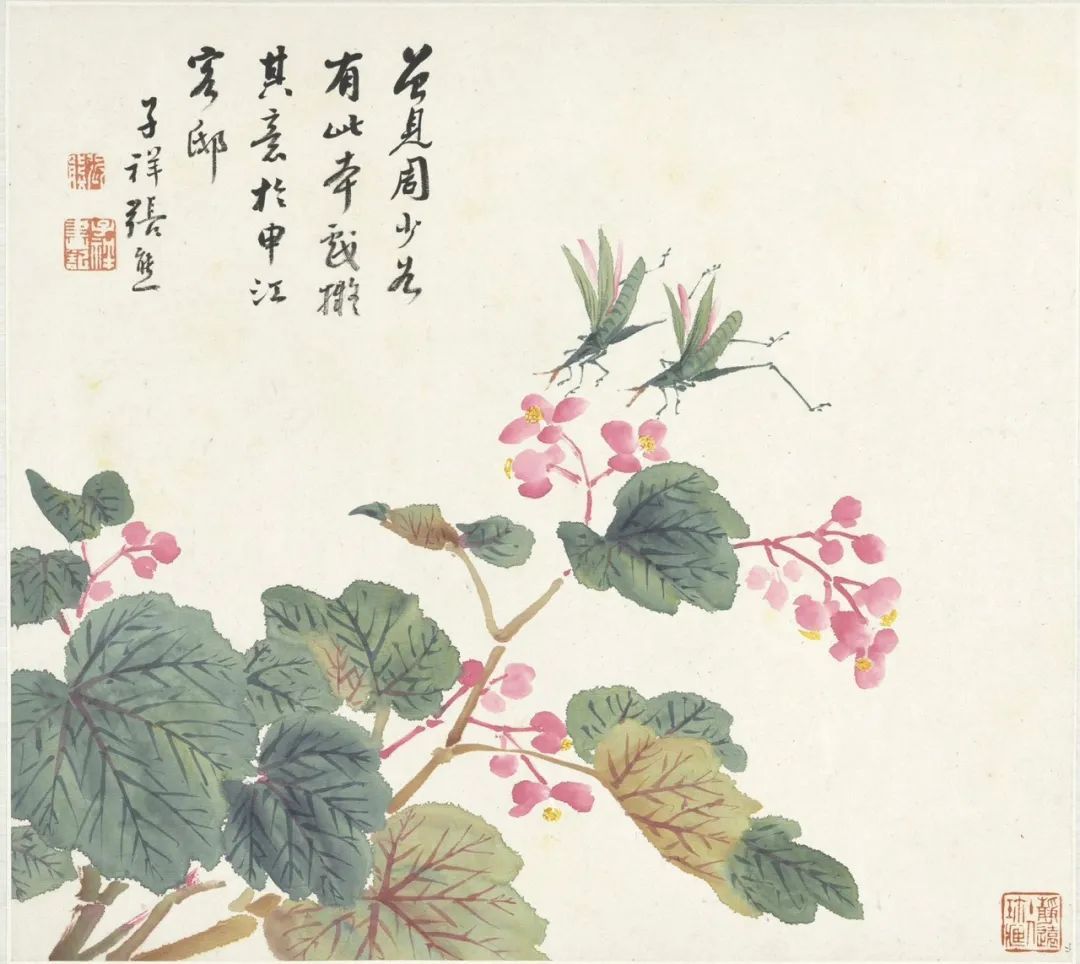 曾見周少谷
有此本戲擬
其意於申江
客邸
子祥張熊
張熊